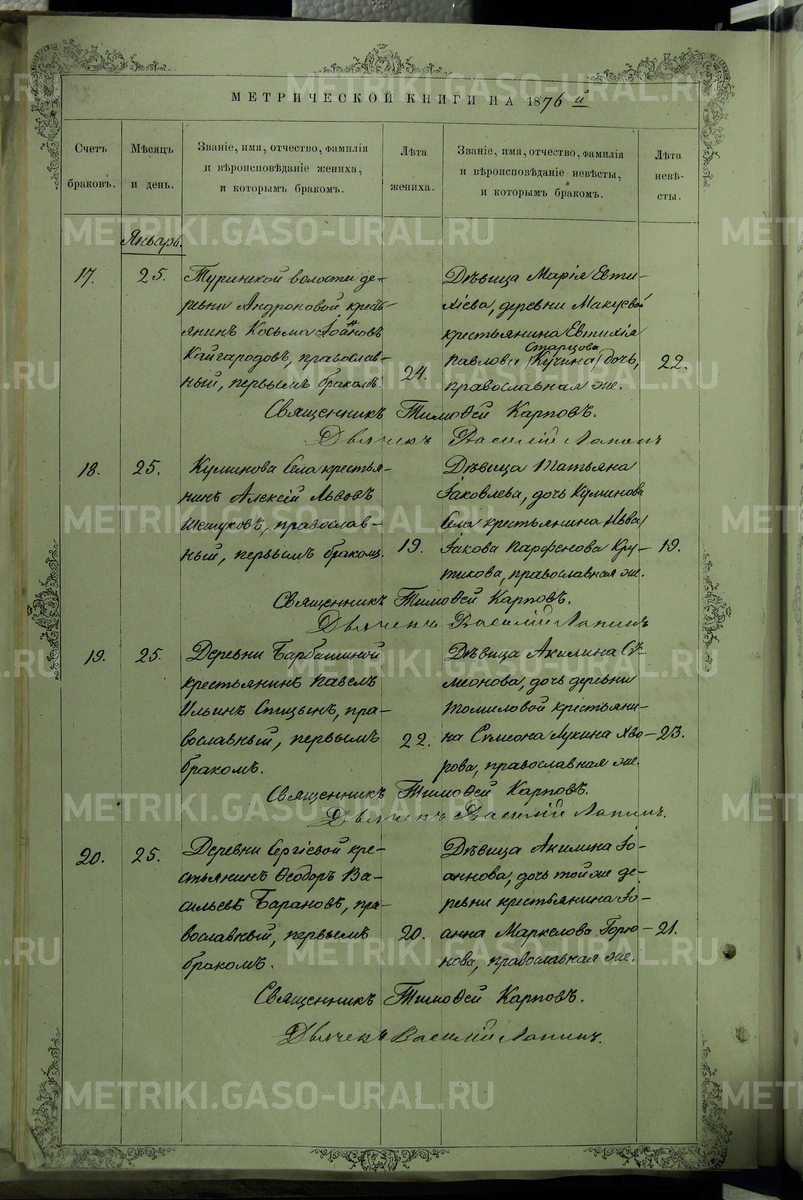 МЕТРИЧЕСКОЙ КНИГИ НА 1876 й
Счетъ браковъ.
Мѣсяцъ и день.
Званіе, имя, отчество, фамилія
и вѣроисповѣданіе жениха,
и которымъ бракомъ.
Лѣта жениха.
Званіе, имя, отчество, фамилія
и вѣроисповѣданіе невѣсты,
и которымъ бракомъ.
Лѣта невѣ-
сты.
Январь.
17.
25.
Туринской волости де-
ревни Андроновой кресть-
янинъ Косьма Іоанновъ
Кайгородовъ, православ-
ный, первымъ бракомъ.
24.
Дѣвица Марія Евти-
хіева, деревни
крестьянина Евтихія
Старцова
Павлова /Кучина/ дочь,
православная же.
22.
Священникъ Тимоѳей Карповъ.
Дьячекъ Василій Лапинъ
18.
25.
Куминова Села крестья-
нинъ Алексій Львовъ
Шешуковъ, православ-
ный, первымъ бракомъ.
19.
Дѣвица Татьяна
Іаковлева, дочь Куминова
Села крестьянина
Іакова Парфенова Кру-
тикова, православная же.
19.
Священникъ Тимоѳей Карповъ.
Дьячекъ Василій Лапинъ
19.
25.
Деревни
крестьянинъ Павелъ
Ильинъ Спицынъ, пра-
вославный, первымъ
бракомъ.
22.
Дѣвица Акилина Сѵ-
меонова, дочь деревни
Томиловой крестьяни-
на Сѵмеона Лукина Хво-
рова, православная же.
23.
Священникъ Тимоѳей Карповъ.
Дьячекъ Василій Лапинъ.
20.
25.
Деревни Сергіевой кре-
стьянинъ Ѳеодоръ Ва-
сильевъ Барановъ, пра-
вославный, первымъ
бракомъ.
20.
Дѣвица Акилина Іо-
аннова, дочь той же де-
ревни крестьянина Іо-
анна Маркелова Горю-
нова, православная же.
21.
Священникъ Тимоѳей Карповъ.
Дьячекъ Василій Лапинъ.
METRIKI.GASO-URAL.RU